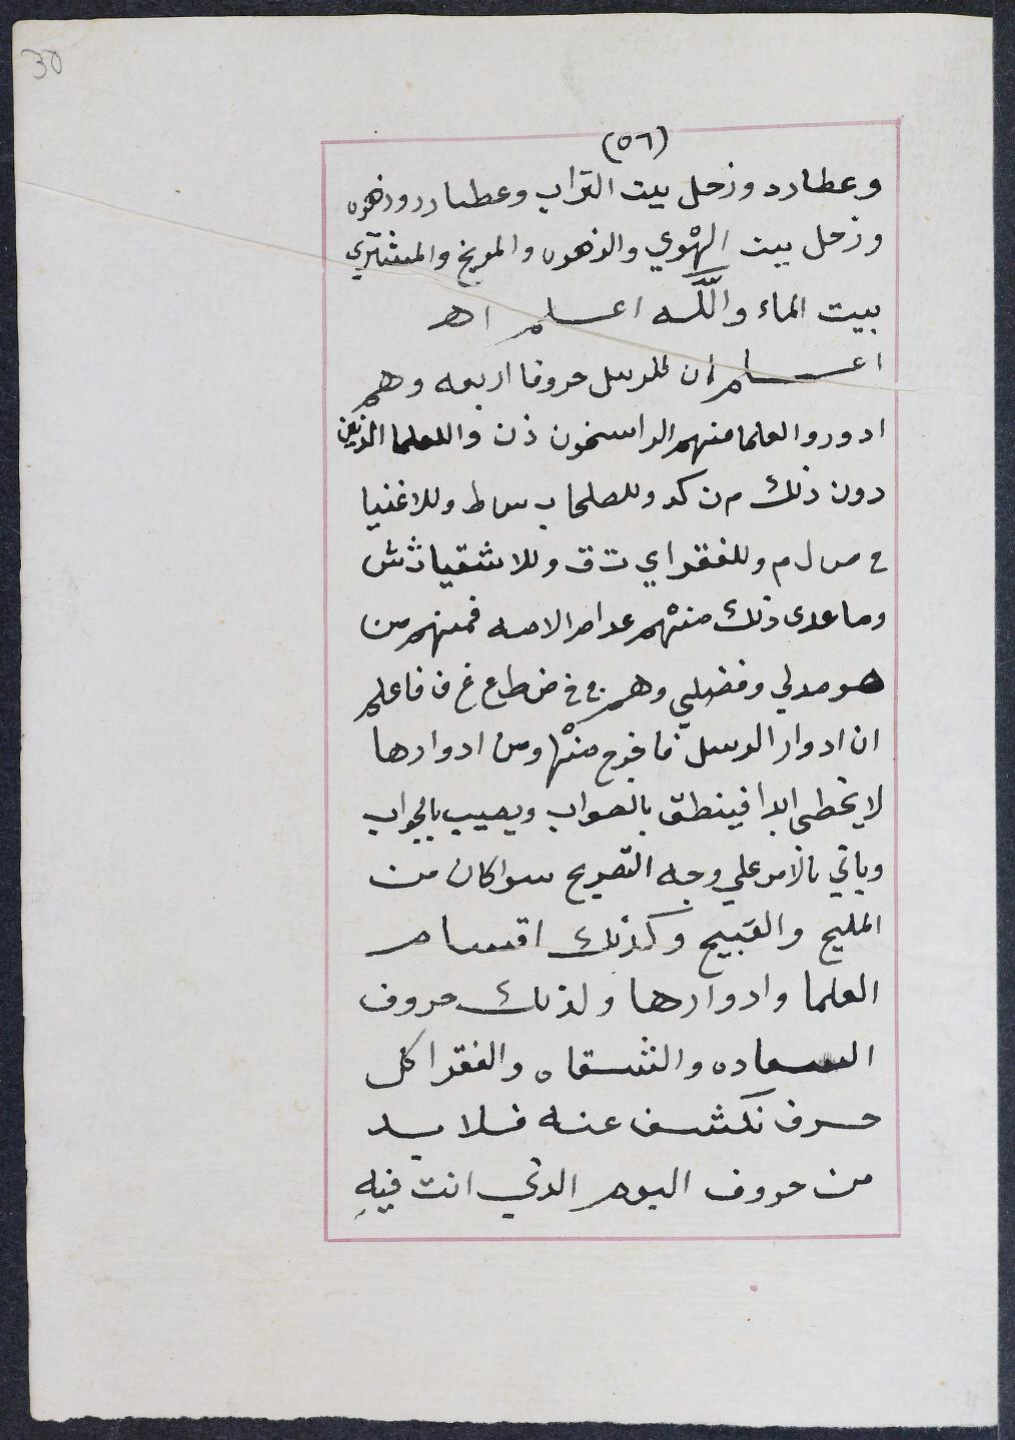 30
(٥٦)
وعطارد وزحل بيت التراب وعطارد وزهره
وزحل بيت الهوي والزهره والمريخ والمشتري
بيت الماء واللّه اعلم اهـ
اعلم ان للرسل حروفا اربعه وهم
ا د و ر والعلما منهم الراسخون ذ ن والعلما الذين
دون ذلك م ن ك د وللصلحا ب س ط وللاغنيا
ح ص ل م وللفقرا ي ت ق وللاشقيا ث ش
وما عدى ذلك منهم عدا فمنهم من
هو وفضلي وهم ج خ ض ظ ع غ ف فاعلم
ان ادوار الرسل فا خرج منها ومن ادوارها
لا يخطي ابدا فينطق بالصواب ويصيب بالجواب
وياتي بالامر علي وجه التصريح سوا كان من
المليح والقبيح وكذلك اقسام
العلما وادوارها ولذلك حروف
السعاده والشقاه والفقرا كل
حرف نكشف عنه فلا بد
من حروف اليوم الذي انت فيهِ